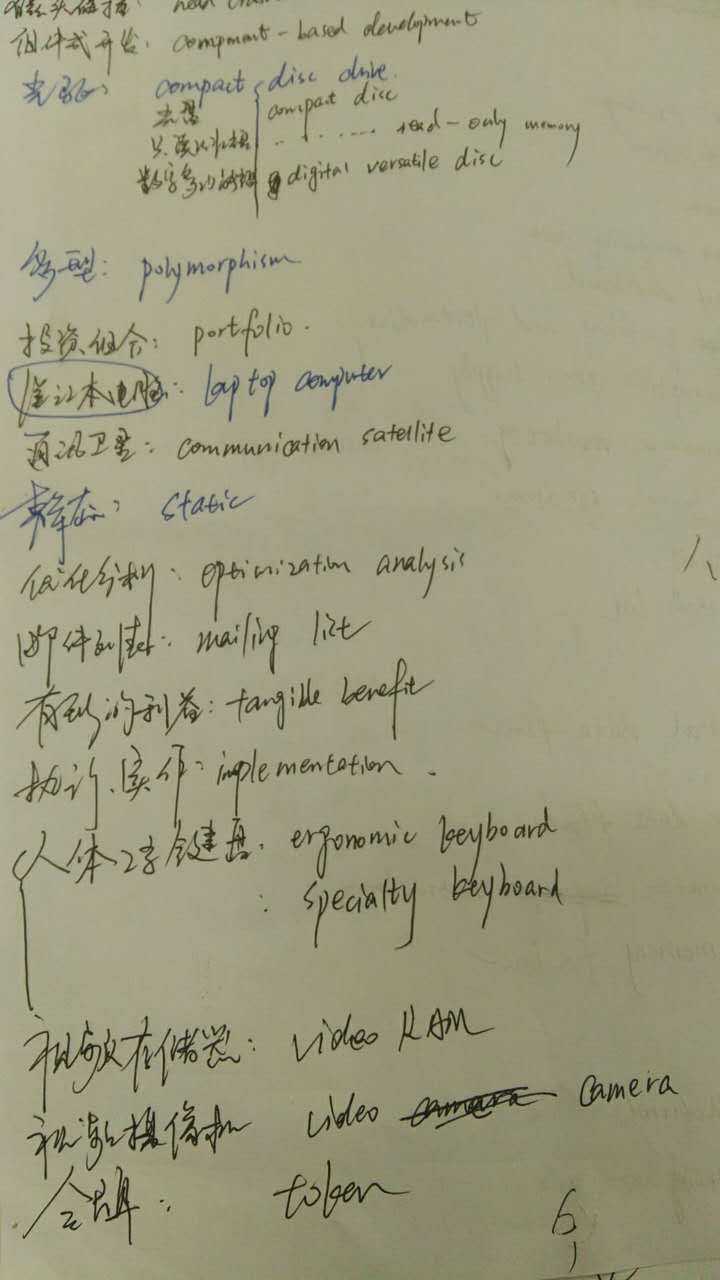 组件式开发: compment-based development
光驱: compact disc drive.
光盘 compact disc
只读光盘 ........ read-only memory
数字多功能光盘 digital versatile disc
多型: polymorphism
投资组合: portfolio.
笔记本电脑: laptop computer
通讯卫星: communication satellite
静态: static
优化分析: optimization analysis
邮件列表: mailing list
有形的利益: tangible benefit
执行、实作: implementation.
人体工学键盘: ergonomic keyboard
: specialty keyboard
视频存储器: video RAM
视频摄像机 video camera
令牌: token
6